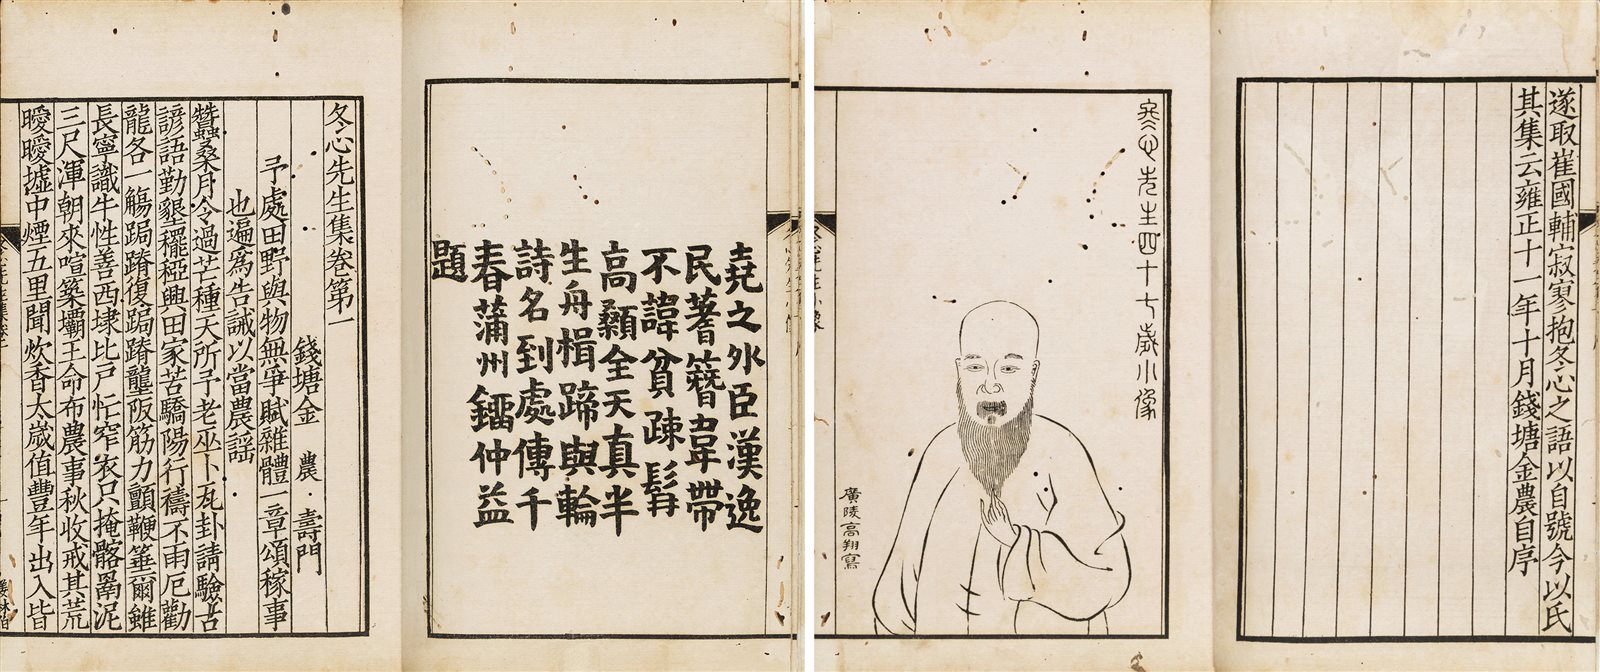 遂取崔國輔寂寥抱冬心之語以自號今以氏
其集云雍正十一年十月錢塘金農自序
冬心先生四十七歲小像
廣陵高翔寫
堯之外臣漢逸
民蓍簪韋帶
不諱貧疎髯
高顙全天真半
生舟楫蹄與輪
詩名到處傳千
春蒲州鐂仲益
題
冬心先生集卷第一
錢塘金農壽門
予處田野與物無爭賦雜體一章頌稼事
也遍寫告誡以當農謡
蠶桑月令過芒種天所予老巫卜瓦卦請驗古
諺語勤墾䆉稏興田家苦驕陽行禱不雨厄勸
龍各一觴跼蹐復跼蹐壟阪筋力顫鞭箠爾雖
長寧識牛性善西埭比戶忙窄衣只掩髂罱泥
三尺渾朝來喧築壩王命布農事秋收戒其荒
曖曖墟中煙五里聞炊香太歲值豐年出入皆